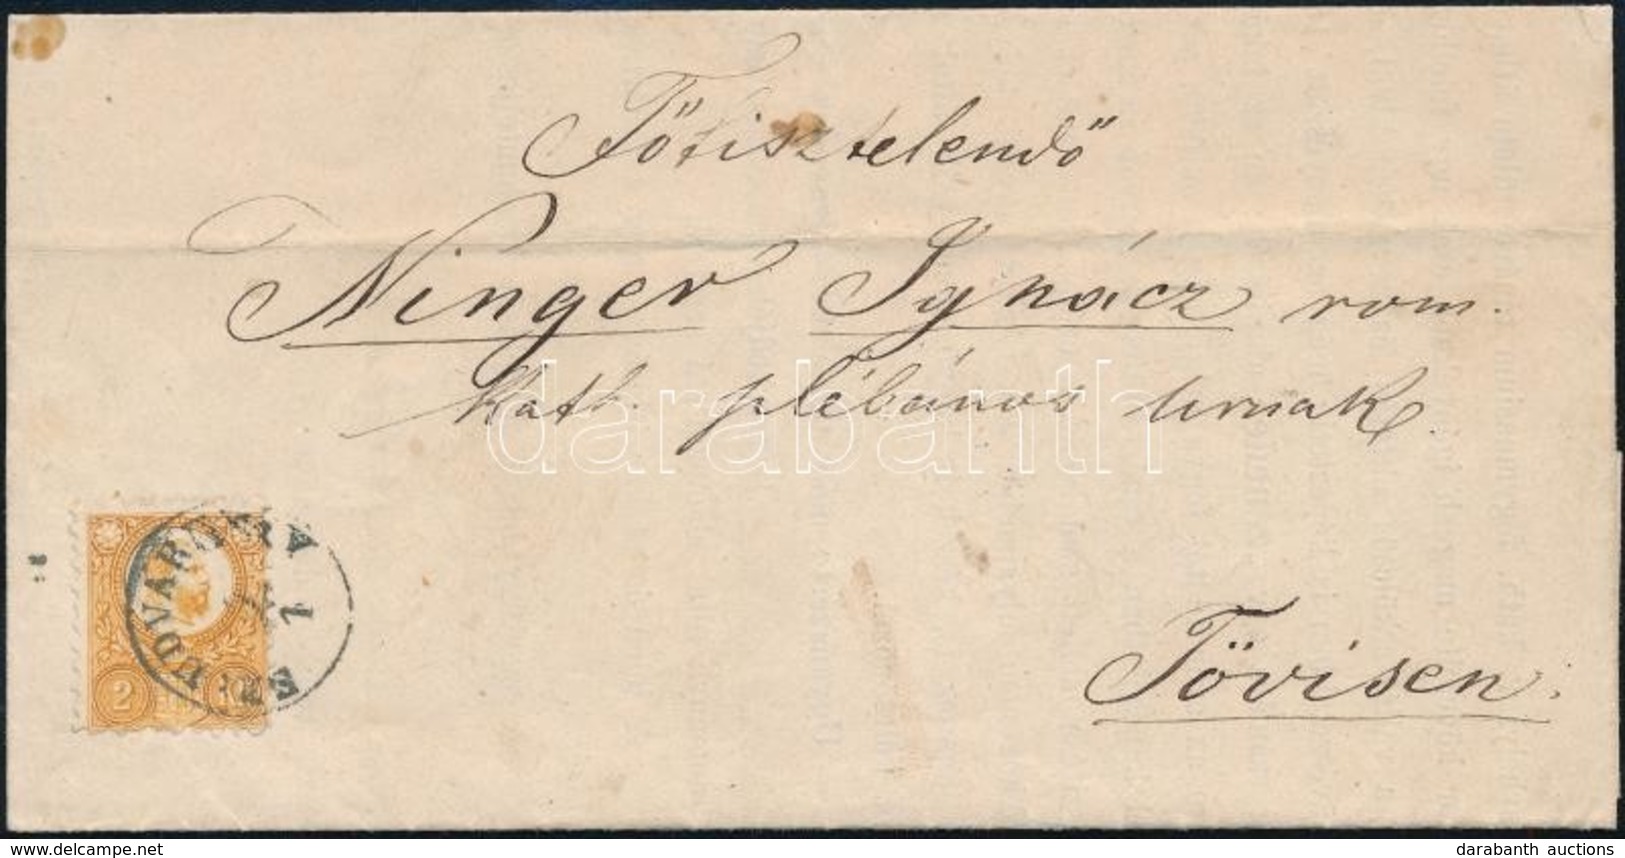 Főtisztelendő
Ninger Ignácz rom.
kath. plébános urnak.
darabanth
Tövisen.
UDVARHELY
2
www.delcampe.net
darabanth auctions